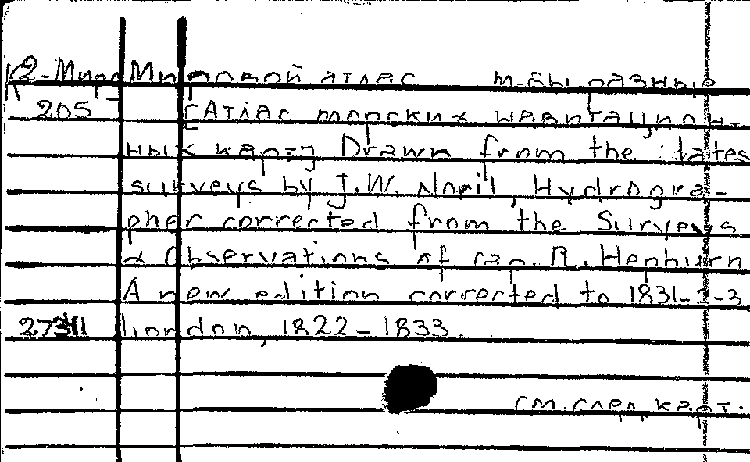 К2-Мир Мировой атлас м-бы разные
205 [Атлас морских навигацион-
ных карт] Drawn from the lates
surveys by J.W. Noril, Hydrogra-
pher corrected from the Surveys
& Observations of cap. R. Hepburn
A new edition corrected to 1831-2-3
27311 London, 1822-1833.
см. след. карт.